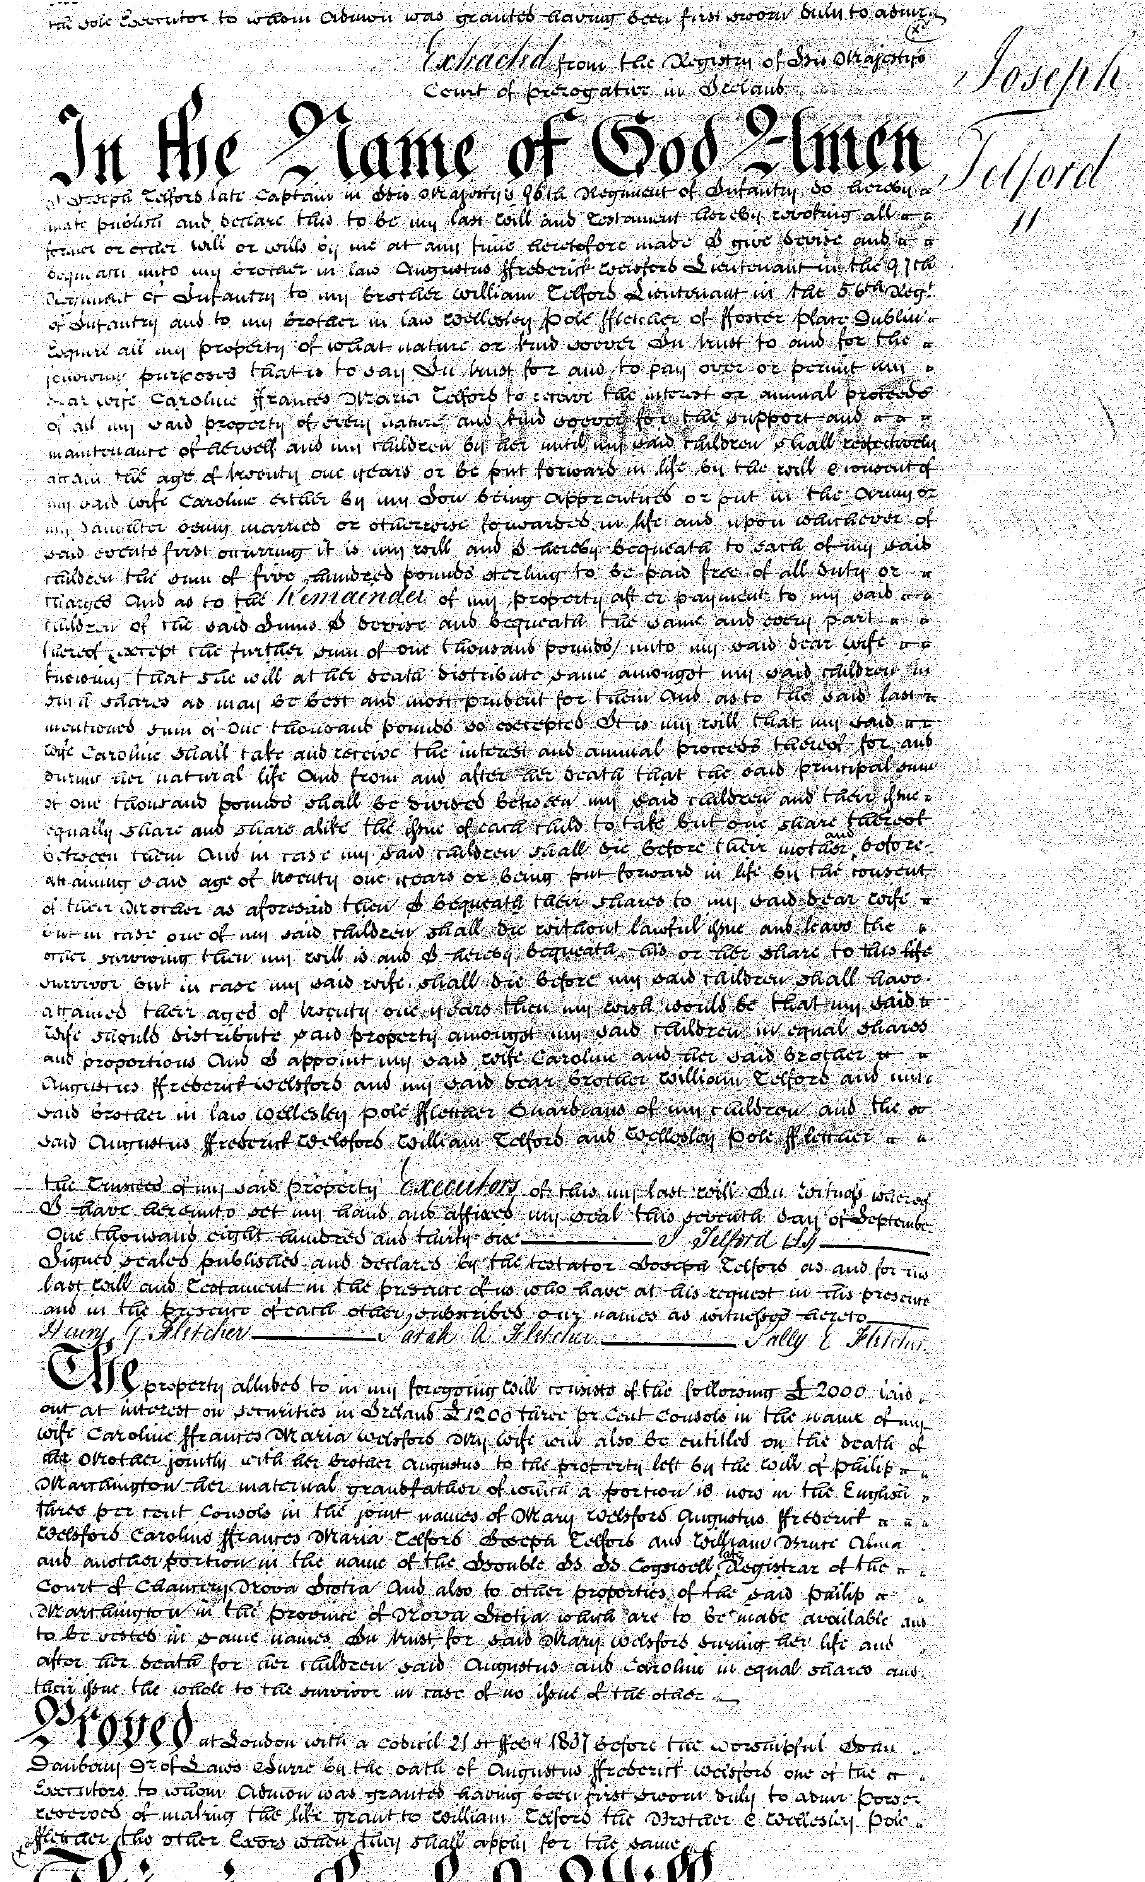 the sole Executor to whom Admon was granted having been first sworn duly to admr
Extracted from the Registry of His Majesty's
Court of Prerogative in Ireland
Joseph
Telford
11
In the Name of God Amen
I Joseph Telford late Captain in His Majesty's 96th Regiment of Infantry do hereby
make publish and declare this to be my last will and Testament hereby revoking all
former or other will or wills by me at any time heretofore made I give devise and
bequeath unto my brother in law Augustus ffrederick Welsford Lieutenant in the 97th
Regiment of Infantry to my brother William Telford Lieutenant in the 56th Regt
of Infantry and to my brother in law Wellesley Pole ffletcher of ffoster place Dublin
Esquire all my property of what nature or kind soever In trust to and for the
following purposes that is to say In trust for and to pay over or permit my
dear wife Caroline ffrances Maria Telford to receive the interest or annual proceeds
of all my said property of every nature and kind soever for the support and
maintenance of herself and my children by her until my said children shall respectively
attain the age of twenty one years or be put forward in life by the will & consent of
my said wife Caroline either by my Son being apprenticed or put in the Army or
my Daughter being married or otherwise forwarded in life and upon whichever of
said events first occurring it is my will and I hereby bequeath to each of my said
children the sum of five hundred pounds sterling to be paid free of all duty or
charges And as to the Remainder of my property after payment to my said
children of the said Sums I devise and bequeath the same and every part
thereof (except the further sum of one thousand pounds) unto my said dear wife
knowing that she will at her death distribute same amongst my said children in
such shares as may be best and most prudent for them And as to the said last
mentioned sum of One thousand pounds so excepted It is my will that my said
wife Caroline shall take and receive the interest and annual proceeds thereof for and
during her natural life And from and after her death that the said principal sum
of one thousand pounds shall be divided between my said children and their issue
equally share and share alike the issue of each child to take but one share thereof
between them And in case my said children shall die before their mother and before
attaining said age of twenty one years or being put forward in life by the consent
of their Mother as aforesaid then I bequeath their shares to my said dear wife
but in case one of my said children shall die without lawful issue and leave the
other surviving then my will is and I hereby bequeath his or her share to this life
survivor but in case my said wife shall die before my said children shall have
attained their ages of twenty one years then my wish would be that my said
wife should distribute said property amongst my said children in equal shares
and proportions And I appoint my said wife Caroline and her said brother
Augustus ffrederick Welsford and my said dear brother William Telford and my
said brother in law Wellesley Pole ffletcher Guardians of my children and the
said Augustus ffrederick Welsford William Telford and Wellesley Pole ffletcher
the Trustees of my said Property Executors of this my last will In witness whereof
I have hereunto set my hand and affixed my seal this seventh day of September
One thousand eight hundred and thirty one J Telford LS
Signed sealed published and declared by the testator Joseph Telford as and for his
last will and Testament in the presence of us who have at his request in his presence
and in the presence of each other subscribed our names as witnesses hereto
Henry G Fletcher Sarah A Fletcher Sally E Fletcher
The property alluded to in my foregoing will consists of the following £2000 laid
out at interest on securities in Ireland £1200 three pr Cent Consols in the name of my
wife Caroline ffrances Maria Welsford My wife will also be entitled on the death of
her Mother jointly with her brother Augustus to the property left by the will of Philip
Marchington her maternal grandfather of which a portion is now in the English
three per cent Consols in the joint names of Mary Welsford Augustus ffrederick
Welsford Caroline ffrances Maria Telford Joseph Telford and William Bruce Alma
and another portion in the name of the Honble H H Cogswell late Registrar of the
Court of Chancery Nova Scotia And also to other properties of the said Philip
Marchington in the Province of Nova Scotia which are to be made available and
to be vested in same names In trust for said Mary Welsford during her life and
after her death for her children said Augustus and Caroline in equal shares and
their issue the whole to the survivor in case of no issue of the other
Proved at London with a codicil 21st ffeby 1837 before the worshipful John
Daubeny Dr of Laws Surre by the oath of Augustus ffrederick Welsford one of the
Executors to whom Admon was granted having been first sworn duly to admr Power
reserved of making the like grant to William Telford the Brother & Wellesley Pole
ffletcher the other Exors when they shall apply for the same